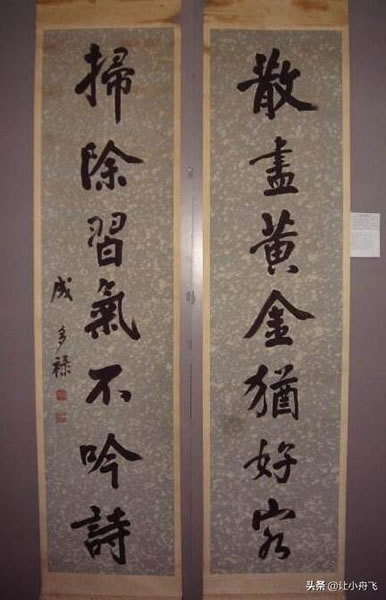 散盡黃金猶好客
掃除習氣不吟詩
成多祿
头条 @让小舟飞